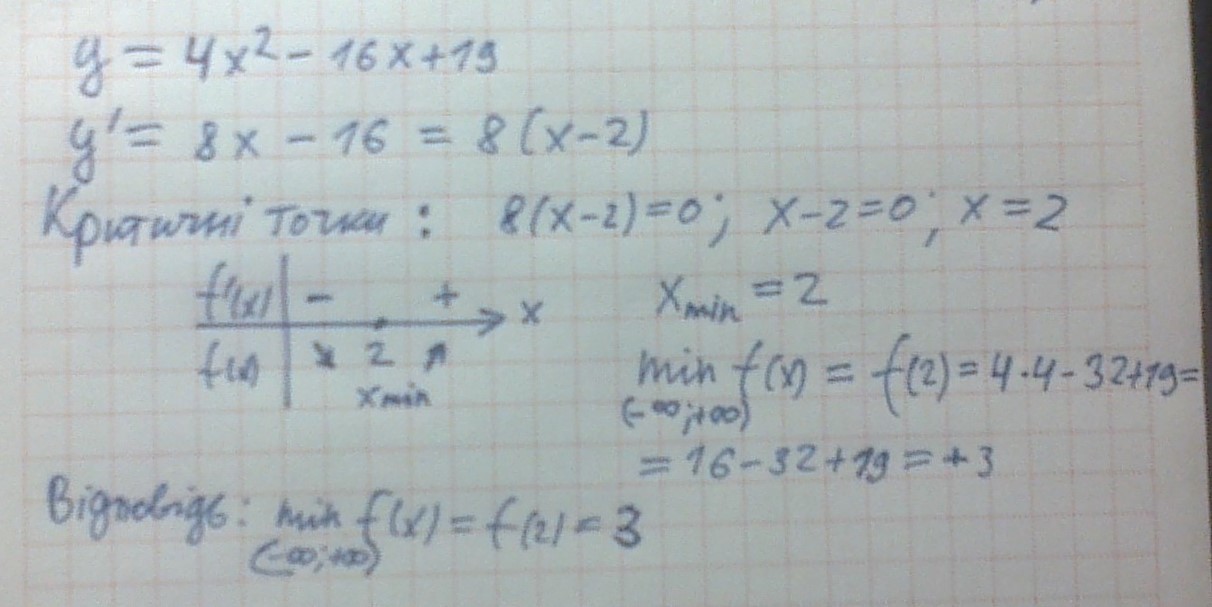 y = 4x² - 16x + 19
y' = 8x - 16 = 8(x-2)
Критичні точки : 8(x-2)=0; x-2=0; x=2
f'(x) - + x
f(x) ↘ 2 ↗
x min
x min = 2
min f(x) = f(2) = 4·4 - 32+19=
(-∞;+∞)
= 16 - 32 + 19 = +3
Відповідь: min f(x) = f(2) = 3
(-∞;+∞)